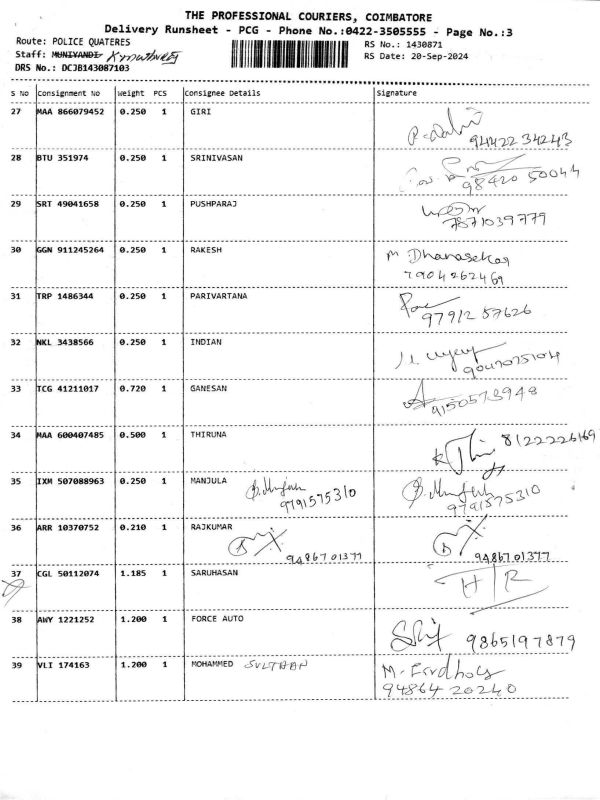 THE PROFESSIONAL COURIERS, COIMBATORE
Delivery Runsheet - PCG - Phone No.:0422-3505555 - Page No.:3
Route: POLICE QUATERES RS No.: 1430871
Staff: MUNIYANDI RS Date: 20-Sep-2024
DRS No.: DCJB143087103
S No Consignment No Weight PCS Consignee Details Signature
27 MAA 866079452 0.250 1 GIRI
94422 34243
28 BTU 351974 0.250 1 SRINIVASAN
98420 50044
29 SRT 49041658 0.250 1 PUSHPARAJ
7871039779
30 GGN 911245264 0.250 1 RAKESH M Dhanasekar
7904262469
31 TRP 1486344 0.250 1 PARIVARTANA
97912 57626
32 NKL 3438566 0.250 1 INDIAN
33 TCG 41211017 0.720 1 GANESAN
9150573948
34 MAA 600407485 0.500 1 THIRUNA 8122226169
35 IXM 507088963 0.250 1 MANJULA
9791575310 9791575310
36 ARR 10370752 0.210 1 RAJKUMAR
9486701377 9486701377
37 CGL 50112074 1.185 1 SARUHASAN
38 AWY 1221252 1.200 1 FORCE AUTO
9865197879
39 VLI 174163 1.200 1 MOHAMMED SULTHAN
94864 20240